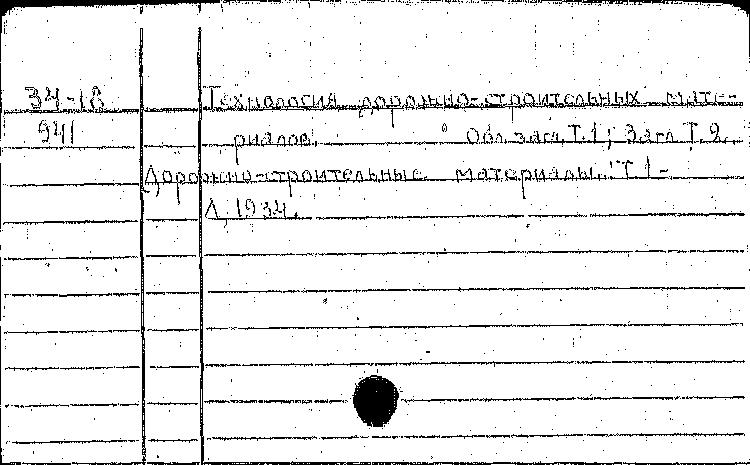 34-18 Технология дорожно-строительных мате-
941 риалов. Обл. загл. Т.1; Загл Т.2.
Дорожно-строительные материалы. Т.1-
Л, 1934.